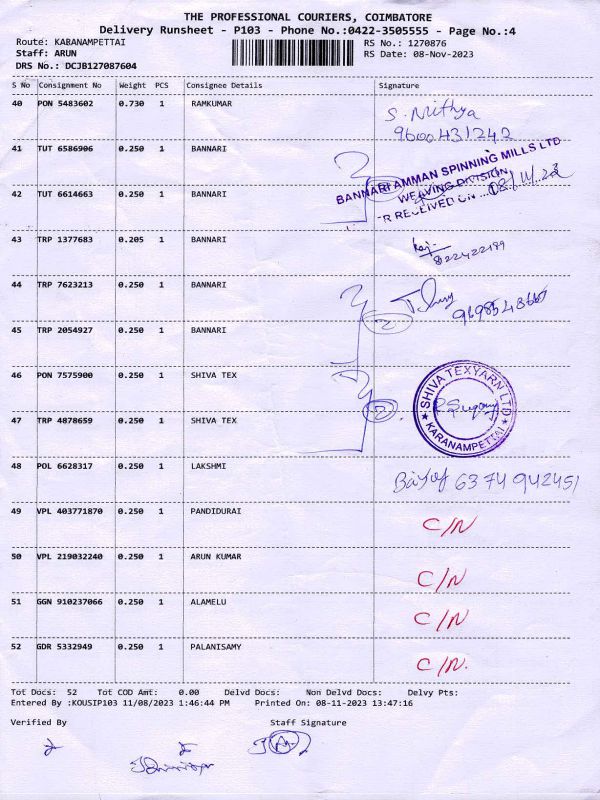 THE PROFESSIONAL COURIERS, COIMBATORE
Delivery Runsheet - P103 - Phone No.:0422-3505555 - Page No.:4
Route: KARANAMPETTAI RS No.: 1270876
Staff: ARUN RS Date: 08-Nov-2023
DRS No.: DCJB127087604
S No Consignment No Weight PCS Consignee Details Signature
40 PON 5483602 0.730 1 RAMKUMAR S. Nithya
9600431242
41 TUT 6586906 0.250 1 BANNARI
BANNARI AMMAN SPINNING MILLS LTD
WEAVING DIVISION
42 TUT 6614663 0.250 1 BANNARI
RECEIVED ON
43 TRP 1377683 0.205 1 BANNARI
44 TRP 7623213 0.250 1 BANNARI
45 TRP 2054927 0.250 1 BANNARI
46 PON 7575900 0.250 1 SHIVA TEX
SHIVA TEXYARN LTD
KARANAMPETTAI
47 TRP 4878659 0.250 1 SHIVA TEX
48 POL 6628317 0.250 1 LAKSHMI 6374942451
49 VPL 403771870 0.250 1 PANDIDURAI C/N
50 VPL 219032240 0.250 1 ARUN KUMAR C/N
51 GGN 910237066 0.250 1 ALAMELU C/N
52 GDR 5332949 0.250 1 PALANISAMY C/N.
Tot Docs: 52 Tot COD Amt: 0.00 Delvd Docs: Non Delvd Docs: Delvy Pts:
Entered By :KOUSIP103 11/08/2023 1:46:44 PM Printed On: 08-11-2023 13:47:16
Verified By Staff Signature